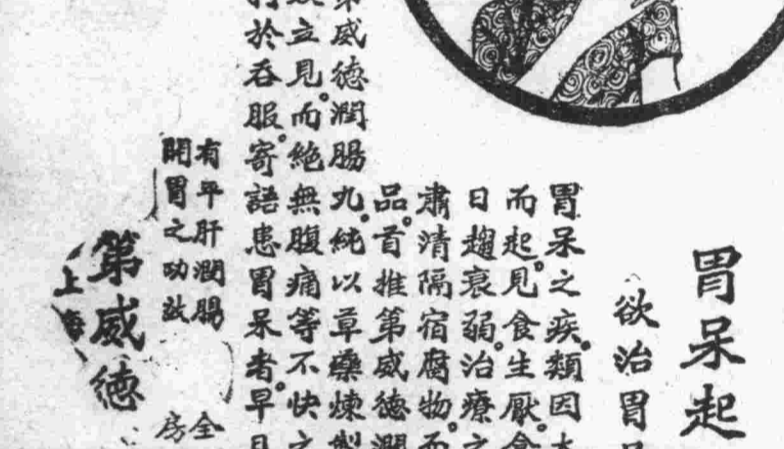 胃呆起
欲治胃
胃呆之疾。類因
而起。見食生厭。食
日趨衰弱。治療之
肅清隔宿腐物。而
品。首推第威德潤
威德潤腸丸。純以草藥煉製
立見。而絶無腹痛等不快之
於吞服。寄語患胃呆者。早
有平肝潤腸
開胃之功效
全
房
第威德
上海